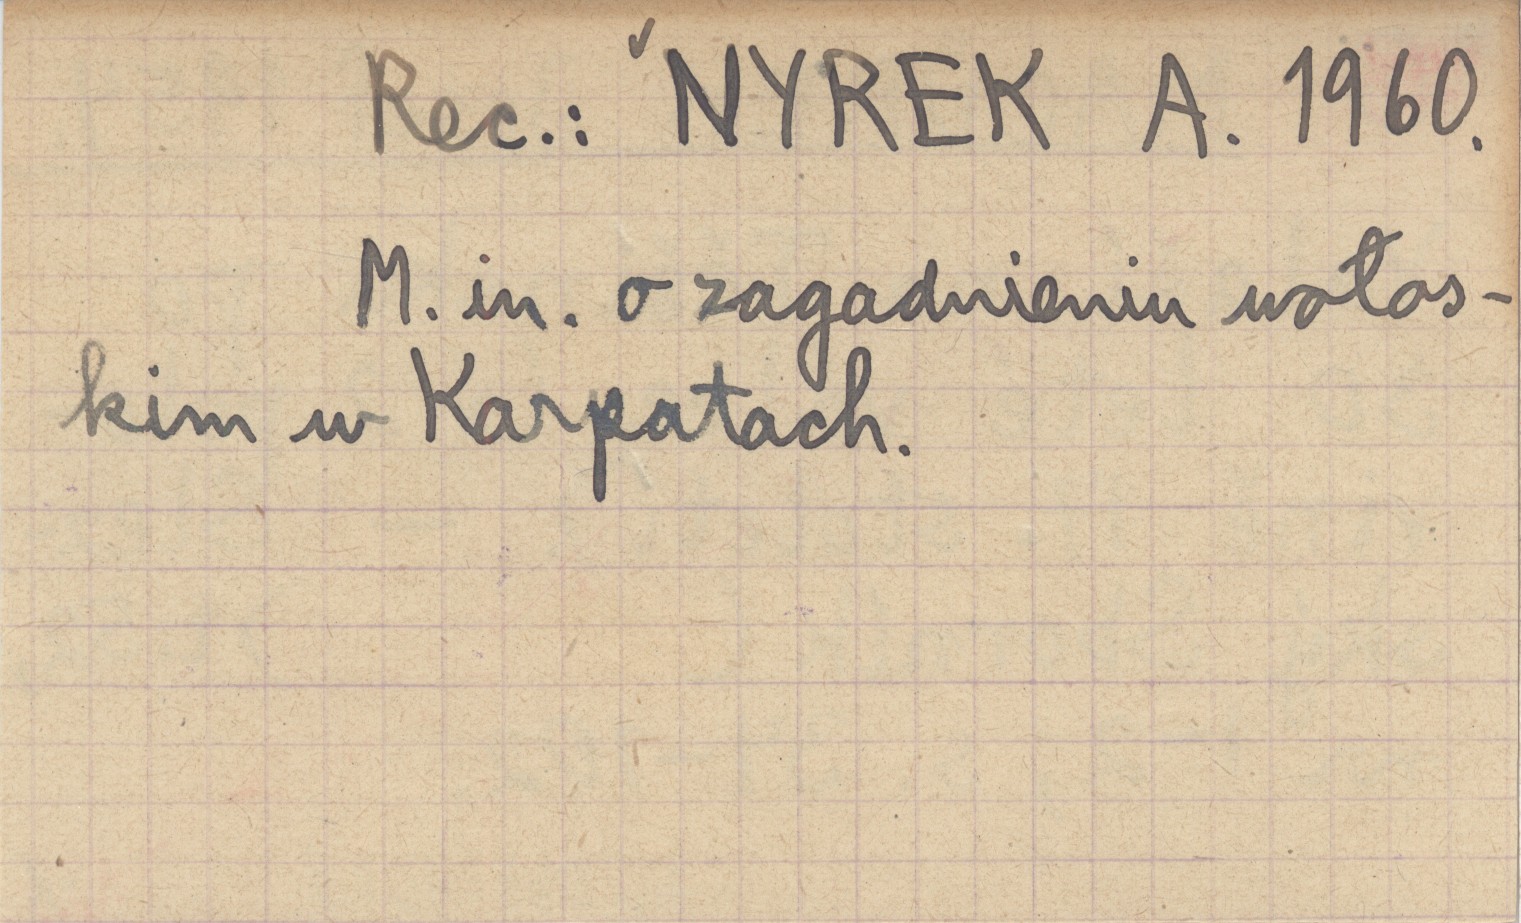 Rec.: ✓NYREK A. 1960.
M. in. o zagadnieniu wołos-
kim w Karpatach.